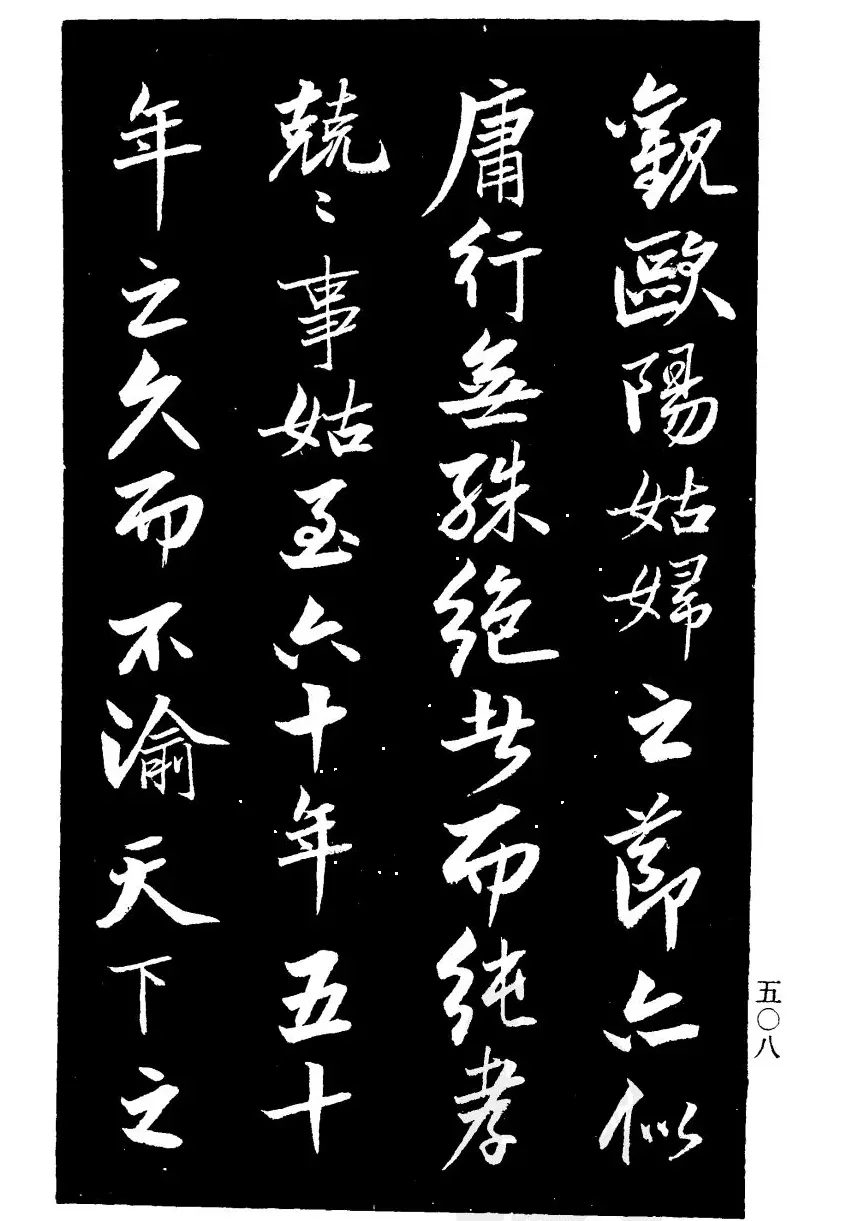 觀歐陽姑婦之節亦似
庸行無殊絶者而純孝
兢〻事姑至六十年五十
年之久而不渝天下之
五〇八